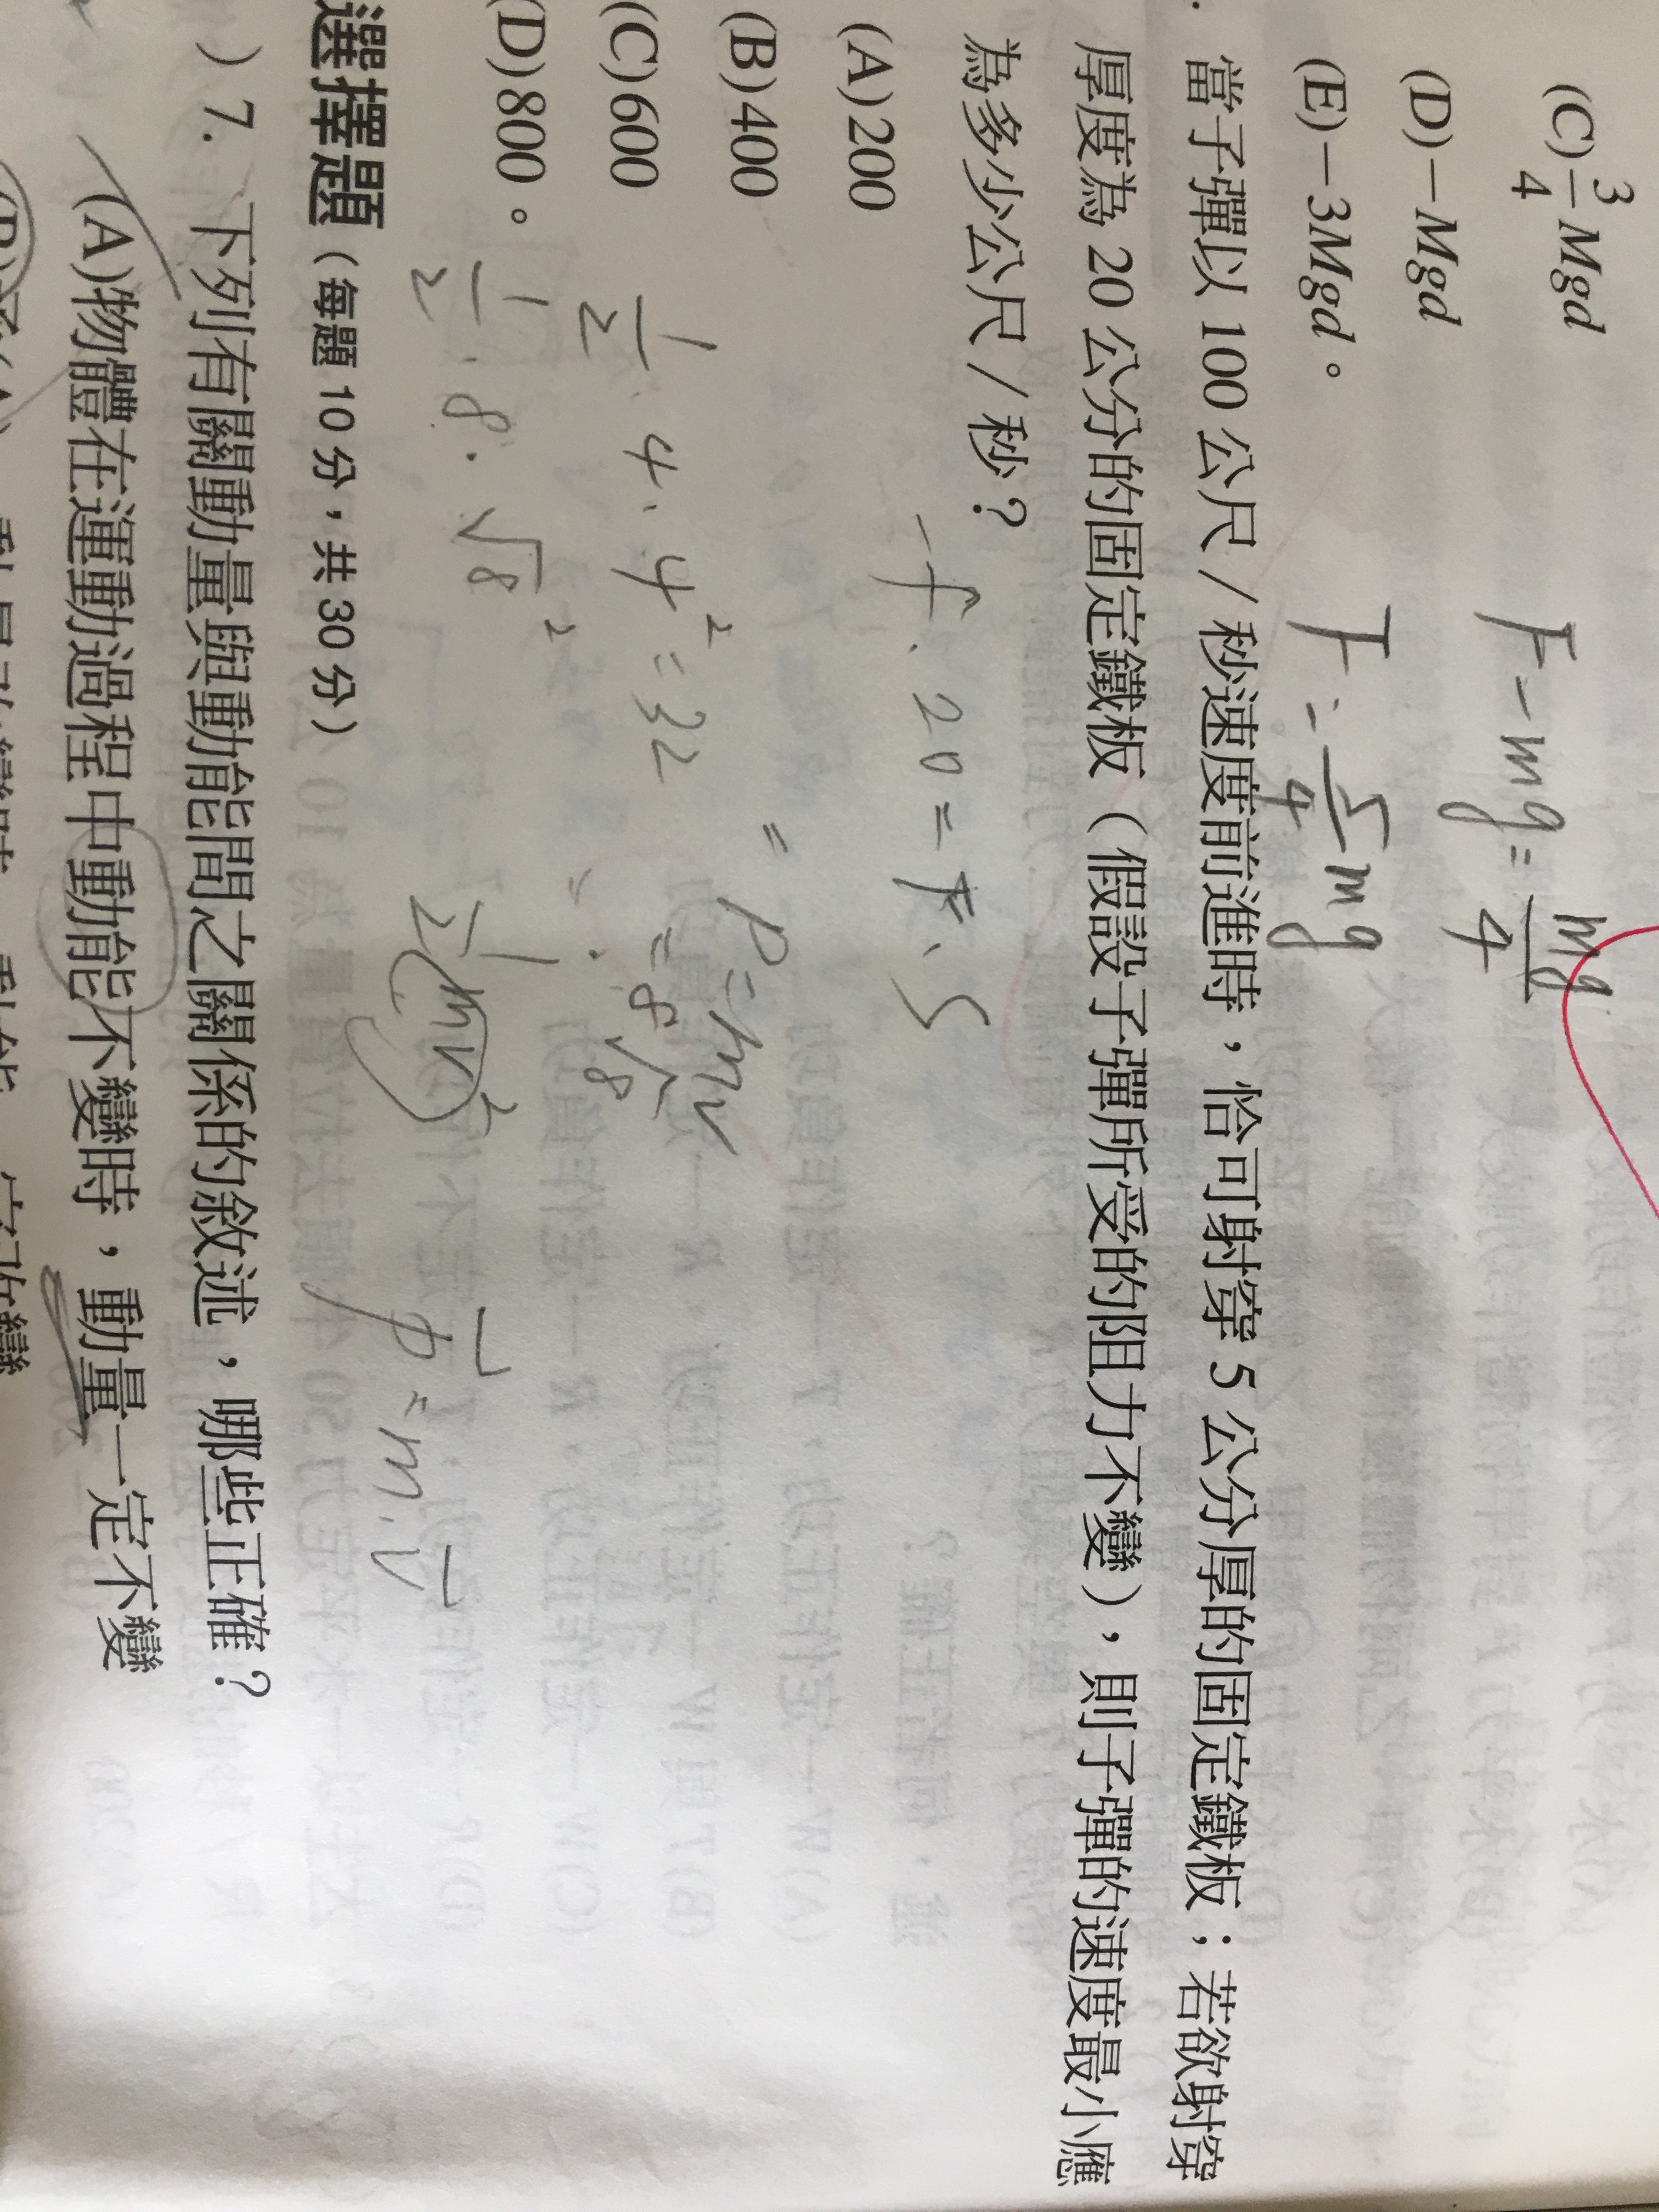 (C) 3/4 Mgd
(D) −Mgd
(E) −3Mgd。
F − mg = mg/4
F = 5/4 mg
. 當子彈以 100 公尺／秒速度前進時，恰可射穿 5 公分厚的固定鐵板；若欲射穿
厚度為 20 公分的固定鐵板（假設子彈所受的阻力不變），則子彈的速度最小應
為多少公尺／秒？
−f · 20 = F · 5
(A)200
(B)400
(C)600
(D)800。
1/2 · 4 · 4² = 32
1/2 · 8 · √8²
P = mv
= 8√8
1/2 mv²
p = m · v
選擇題（每題 10 分，共 30 分）
) 7. 下列有關動量與動能間之關係的敘述，哪些正確？
(A)物體在運動過程中動能不變時，動量一定不變